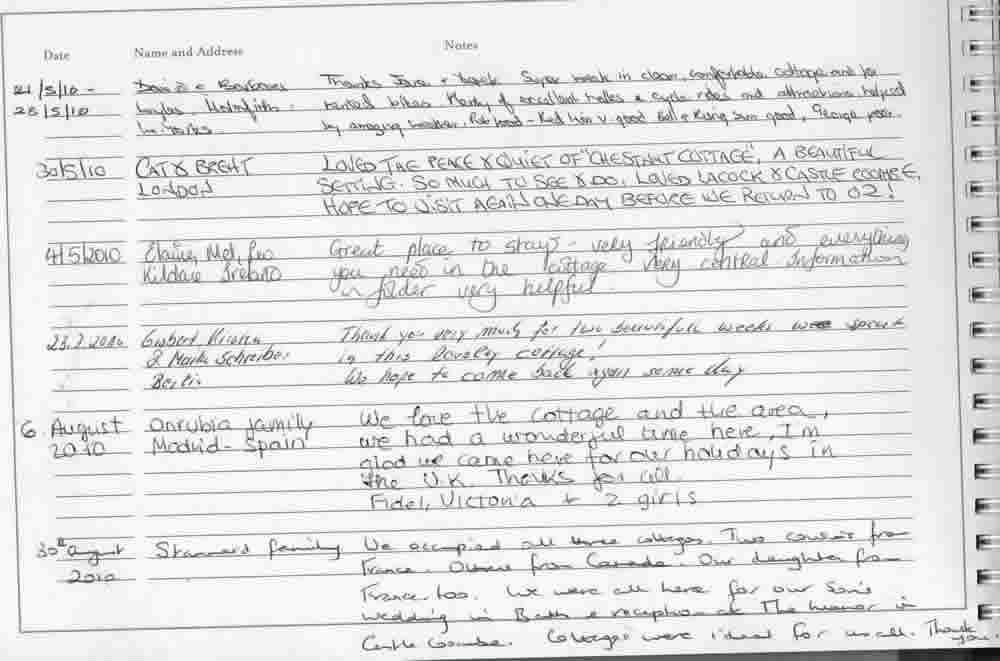 Date Name and Address Notes
21/5/10 - David & Barbara Thanks Jane & Super break in clean, comfortable cottage and for
28/5/10 Holmfirth. bikes. Plenty of excellent walks & cycle rides and attractions, helped
W. Yorks. by amazing weather. Pub food - Red Lion v. good Bell & Rising Sun good, George poor.
30/5/10 CAT & BRENT LOVED THE PEACE & QUIET OF "CHESTNUT COTTAGE", A BEAUTIFUL
LONDON SETTING. SO MUCH TO SEE & DO, LOVED LACOCK & CASTLE COOMBE,
HOPE TO VISIT AGAIN ONE DAY BEFORE WE RETURN TO OZ!
4/5/2010 Elaine, Mel, Great place to stay - very friendly and everything
Kildare Ireland you need in the cottage very central Information
in folder very helpful.
23.7.2010 Thank you very much for two beautifull weeks we spent
& Schreiber in this lovely cottage!
Berlin We hope to come back again some day
6. August Onrubia family We love the cottage and the area,
2010 Madrid - Spain we had a wonderful time here, I'm
glad we came here for our holidays in
the U.K. Thanks for all.
Fidel, Victoria + 2 girls
30th August Stannard family We occupied all three cottages. Two couples from
2010 France. Others from Canada. Our daughter from
France too. We were all here for our Son's
Wedding in Bath & reception at The Manor in
Castle Coombe. Cottages were ideal for us all. Thank
you.